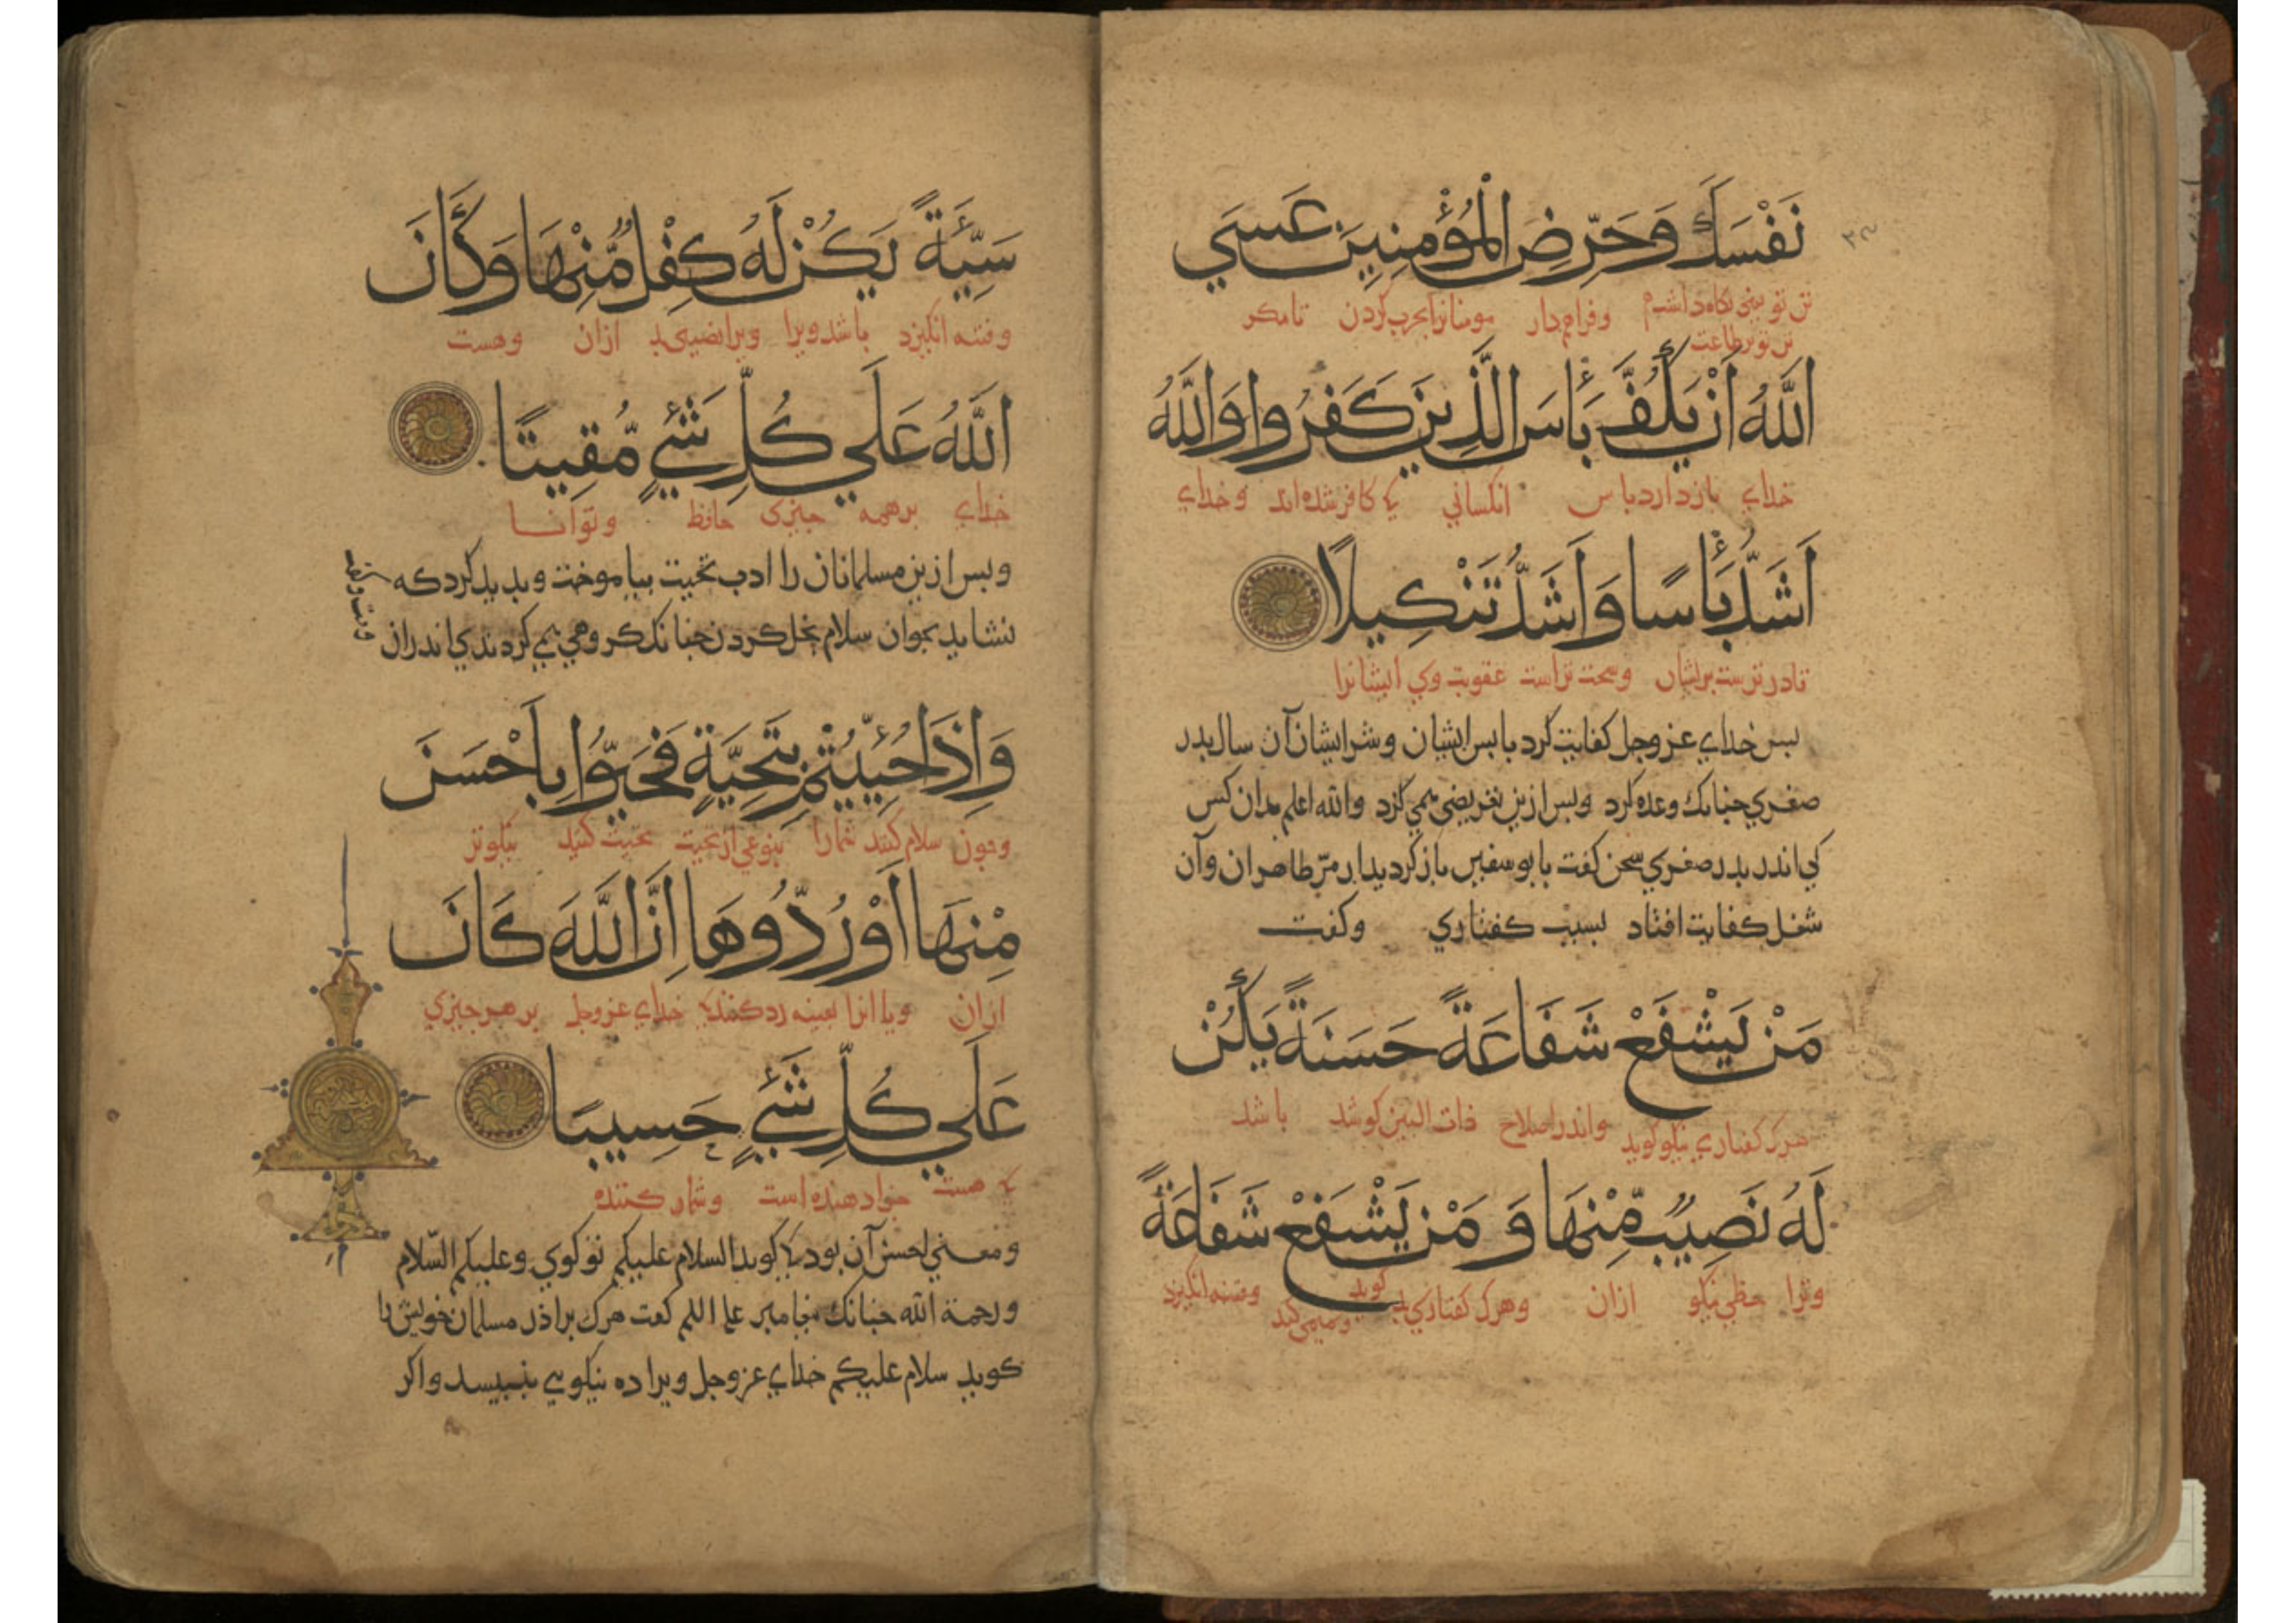 نَفْسَكَ وَحَرِّضِ الْمُؤْمِنِينَ عَسَي
تن تو يعنى نكاه داشتم وفرامدار مومنانرا بحرب كردن تامكر
تن تو بر طاعت
اللَّهُ أَنْ يَكُفَّ بَأْسَ الَّذِينَ كَفَرُوا وَاللَّهُ
خداي بازدارد باس انكساني كى كافر شده اند وخداي
أَشَدُّ بَأْسًا وَأَشَدُّ تَنْكِيلًا
قادر ترست بريشان وسخت تراست عقوبت وي ايشانرا
بس خداي عز وجل كفايت كرد باس ايشان وشر ايشان آن سال بدر
صغري جنانك وعده كرد وبس ازين تعريضى همي كرد والله اعلم بدان كس
كى اندر بدر صغري سخن كفت با بوسفين باز كرديدار مر طاهران وآن
شغل كفايت افتاد بسبب كفتاري وكفت
مَنْ يَشْفَعْ شَفَاعَةً حَسَنَةً يَكُنْ
هرك كفتاري نيكو كويد واندر اصلاح ذات البين كوشد باشد
لَهُ نَصِيبٌ مِّنْهَا وَ مَنْ يَشْفَعْ شَفَاعَةً
ويرا حظي نيكو ازان وهرك كفتاري بد كويد وفتنه انكيزد
سَيِّئَةً يَكُنْ لَهُ كِفْلٌ مِّنْهَا وَكَانَ
وفتنه انكيزد باشد ويرا ويرا نصيبى بد ازان وهست
اللَّهُ عَلَي كُلِّ شَيْءٍ مُّقِيتًا
خداي برهمه جيزى حافظ وتوانا
وبس ازين مسلمانان را ادب تحيت بياموخت وبديد كرد كه
نشايد بجواب سلام بخل كردن جنانك كروهي همي كردندي اندران
وَإِذَا حُيِّيتُمْ بِتَحِيَّةٍ فَحَيُّوا بِأَحْسَنَ
وجون سلام كنند شمارا بنوعي از تحيت تحيت كنيد نيكوتر
مِنْهَا أَوْ رُدُّوهَا إِنَّ اللَّهَ كَانَ
ازان ويا انرا بعينه رد كنيد كى خداي عز وجل بر هر جيزي
عَلَي كُلِّ شَيْءٍ حَسِيبًا
كى هست جزا دهنده است وشمار كننده
ومعني احسن آن بود كى كويد السلام عليكم تو كوي وعليكم السّلام
ورحمة الله جنانك بيغامبر علم اللم كفت هرك براذر مسلمان خويش را
كويد سلام عليكم خداي عز وجل ويرا ده نيكويي بنبيسد واكر